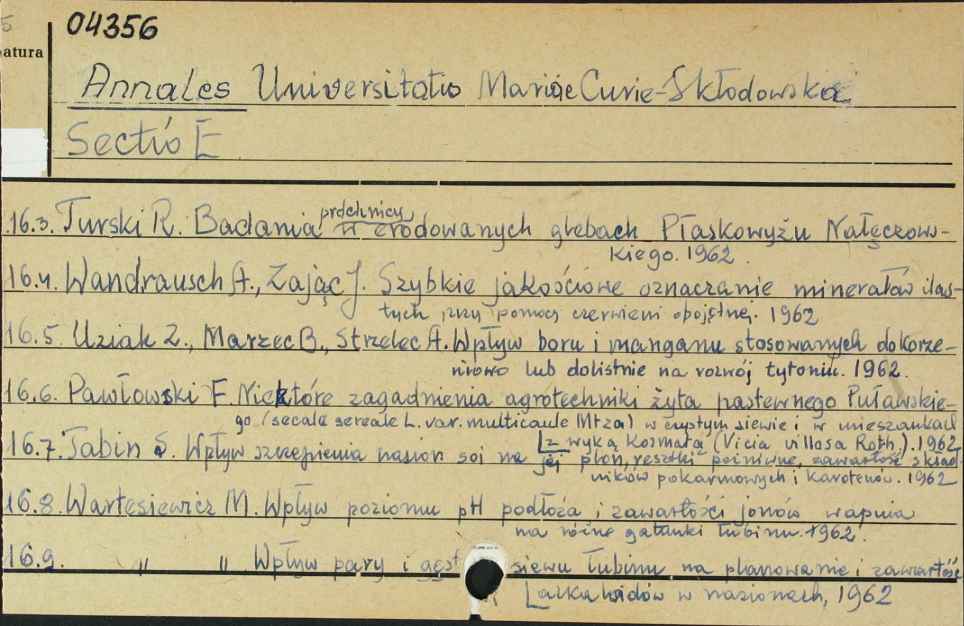 5
04356
atura
Annales Universitatis Mariae Curie-Skłodowska
Sectio E
16.3. Turski R. Badania próchnicy w erodowanych glebach Płaskowyżu Nałęczows-
kiego. 1962.
16.4. Wandrausch A., Zając J. Szybkie jakościowe oznaczanie minerałów ilas-
tych przy pomocy czerwieni obojętnej. 1962
16.5. Uziak Z., Marzec B., Strzelec A. Wpływ boru i manganu stosowanych dokorze-
niowo lub dolistnie na rozwój tytoniu. 1962.
16.6. Pawłowski F. Niektóre zagadnienia agrotechniki żyta pastewnego Puławskie-
go (secale sereale L. var. multicaule Mtza) w czystym siewie i w mieszankach
[z wyką kosmatą (Vicia villosa Roth.). 1962
16.7. Tabin S. Wpływ szczepienia nasion soi na jej plon, resztki pożniwne, zawartość skład-
ników pokarmowych i karotenów. 1962
16.8. Wartesiewicz M. Wpływ poziomu pH podłoża i zawartości jonów wapnia
na różne gatunki łubinu. 1962.
16.9. " " Wpływ pary i gęst siewu łubinu na plonowanie i zawartość
[alkaloidów w nasionach, 1962